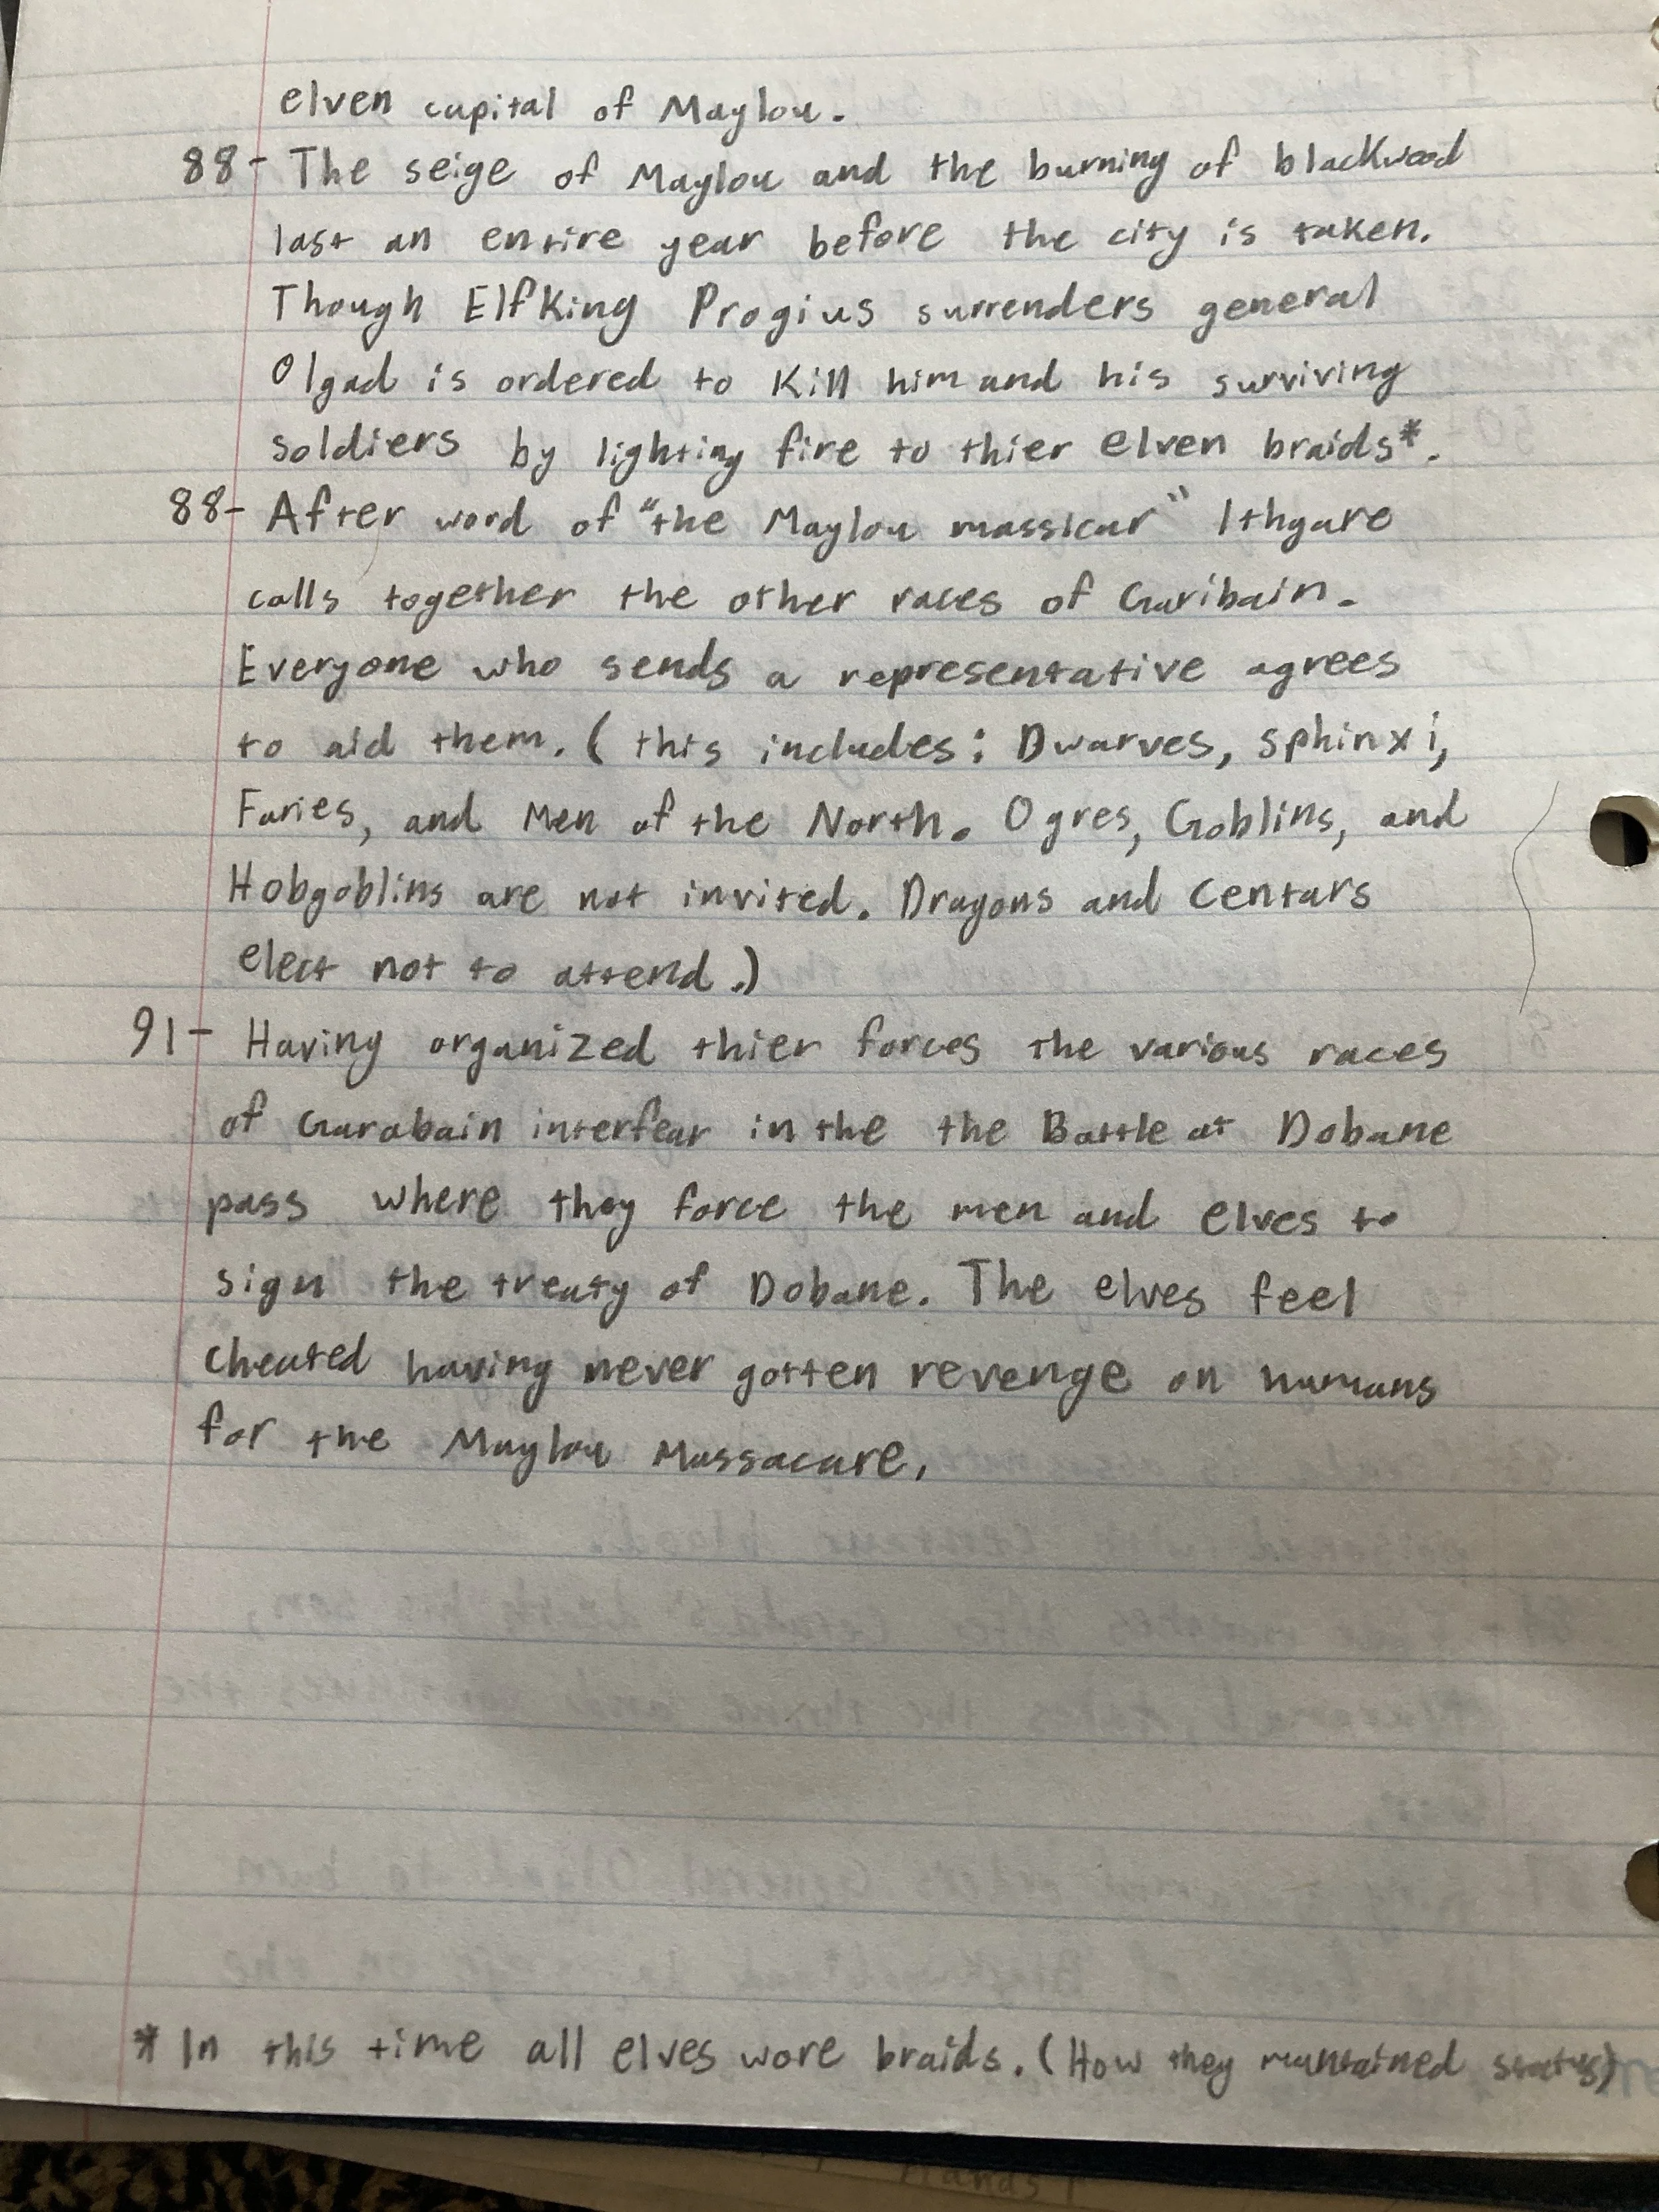 elven capital of Maylou.
88- The seige of Maylou and the burning of blackwood
last an entire year before the city is taken.
Though Elf King Progius surrenders general
Olgad is ordered to Kill him and his surviving
soldiers by lighting fire to thier elven braids*.
88- After word of "the Maylou massicar" Ithgare
calls together the other races of Garibain.
Everyone who sends a representative agrees
to aid them. ( this includes: Dwarves, sphinxi,
Faries, and Men of the North. Ogres, Goblins, and
Hobgoblins are not invited. Dragons and Centars
elect not to attend.)
91- Having organized thier forces the various races
of Garabain interfear in the the Battle at Dobane
pass where they force the men and elves to
sign the treaty of Dobane. The elves feel
cheated having never gotten revenge on humans
for the Maylou Massacare.
* In this time all elves wore braids. (How they muntained status)